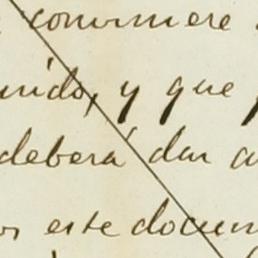 conviniere
nido, y que
deberá dar a
este docum